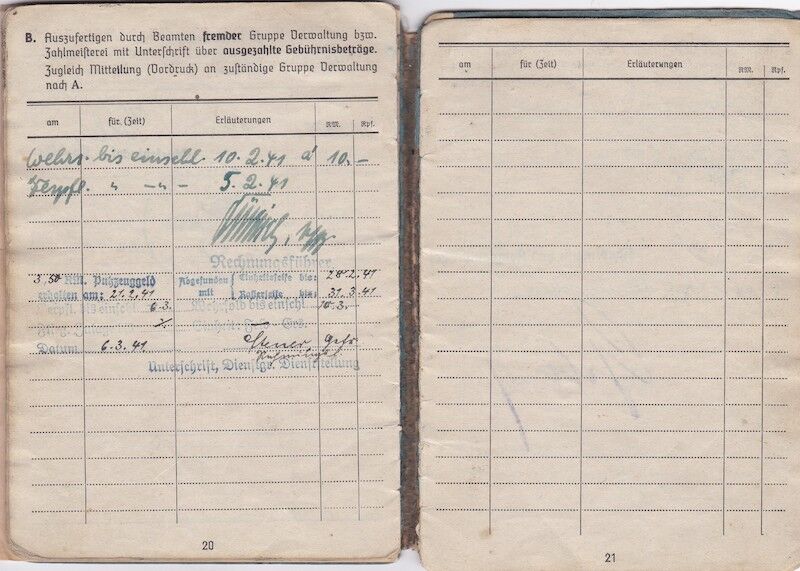 B. Auszufertigen durch Beamten fremder Gruppe Verwaltung bzw.
Zahlmeisterei mit Unterschrift über ausgezahlte Gebührnisbeträge.
Zugleich Mitteilung (Vordruck) an zuständige Gruppe Verwaltung
nach A.
am für (Zeit) Erläuterungen RM. Rpf.
Wehrs. bis einschl. 10.2.41 á 10.-
Verpfl. " -"- 5.2.41
Rechnungsführer
3,50 RM. Putzzeuggeld
erhalten am: 21.2.41
Abgefunden mit
Einheitsseife bis: 28.2.41
Rasierseife bis: 31.3.41
Verpfl. bis einschl. 6.3.
Wehrsold bis einschl. 10.3.
Datum 6.3.41
Gefr.
Unterschrift, Dienstgr. Dienststellung
20
am für (Zeit) Erläuterungen RM. Rpf.
21